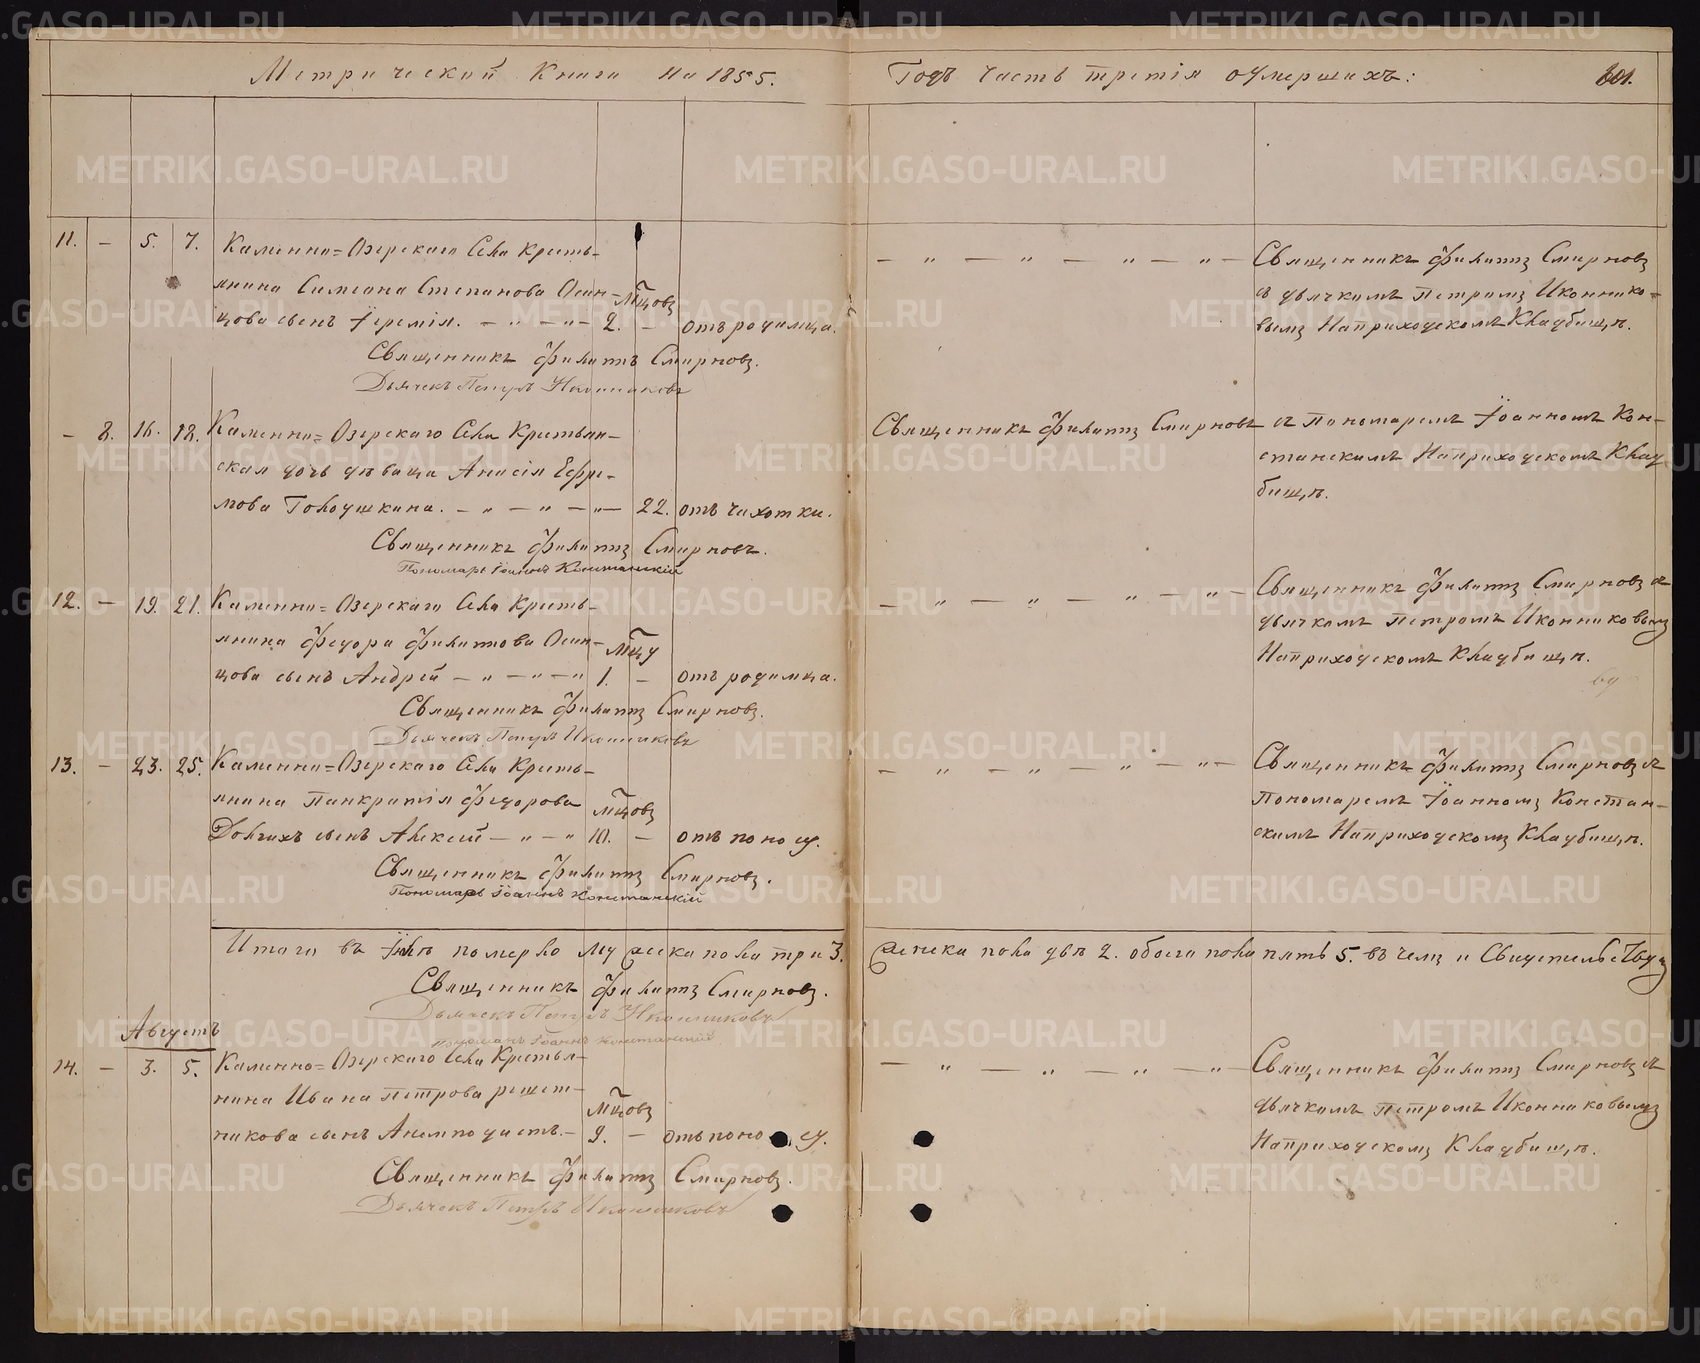 Метрической Книги На 1855.
Годъ часть третія о умершихъ:
601.
11. — 5. 7. Каменно=Озерскаго Села Кресть-
янина Симеона Степанова Осин-
цова сынъ Іеремія. — „ — „ — 2. мцовъ — отъ родимца.
Священникъ Филиппъ Смирновъ.
Дьячекъ Петръ Иконниковъ
— „ — „ — „ — „ — Священникъ Филиппъ Смирновъ
съ дьячкомъ Петромъ Иконнико-
вымъ На приходскомъ Кладбищѣ.
— 8. 16. 18. Каменно=Озерскаго Села Крестьян-
ская дочь дѣвица Анисія Ефре-
мова Голоушкина. — „ — „ — „ — 22. отъ чахотки.
Священникъ Филиппъ Смирновъ.
Пономарь Іоаннъ Констанскій
Священникъ Филиппъ Смирновъ съ Пономаремъ Іоанномъ Кон-
станскимъ На приходскомъ Клад
бищѣ.
12. — 19. 21. Каменно=Озерскаго Села Кресть-
янина Федора Филиппова Осин-
цова сынъ Андрей — „ — „ — „ 1. мцу — отъ родимца.
Священникъ Филиппъ Смирновъ.
Дьячекъ Петръ Иконниковъ
— „ — „ — „ — „ — Священникъ Филиппъ Смирновъ съ
дьячкомъ Петромъ Иконниковымъ
На приходскомъ Кладбищѣ.
13. — 23. 25. Каменно=Озерскаго Села Кресть-
янина Панкратія Федорова
Долгихъ сынъ Алексей — „ — „ 10. мцовъ — отъ поносу.
Священникъ Филиппъ Смирновъ.
Пономарь Іоаннъ Констанскій
— „ — „ — „ — „ — Священникъ Филиппъ Смирновъ съ
Пономаремъ Іоанномъ Констан-
скимъ На приходскомъ Кладбищѣ.
Итого въ Іюлѣ померло мужеска пола три 3. женска пола двѣ 2. обоего пола пять 5. въ чемъ и Свидетельствуемъ
Священникъ Филиппъ Смирновъ.
Дьячекъ Петръ Иконниковъ
пономарь Іоаннъ Констанскій
Августъ
14. — 3. 5. Каменно=Озерскаго Села Крестья-
нина Ивана Петрова решет-
никова сынъ Анемподистъ. — 9. мцовъ — отъ поносу.
Священникъ Филиппъ Смирновъ.
Дьячекъ Петръ Иконниковъ
— „ — „ — „ — „ — Священникъ Филиппъ Смирновъ съ
дьячкомъ Петромъ Иконниковымъ
На приходскомъ Кладбищѣ.
METRIKI.GASO-URAL.RU